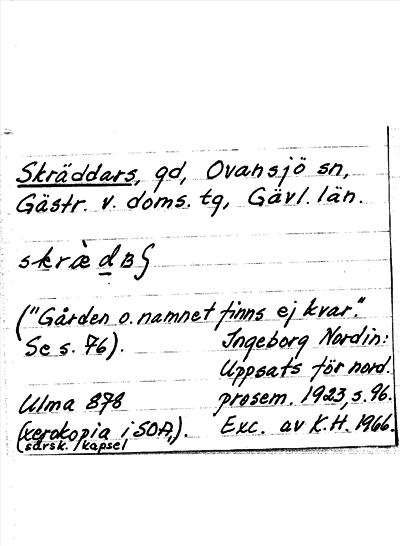 Skräddars, gd, Ovansjö sn,
Gästr. v. doms. tg, Gävl. län.
("Gården o. namnet finns ej kvar."
Se s. 76).
Ingeborg Nordin:
Uppsats för nord.
prosem. 1923, s. 96.
Exc. av K.H. 1966.
Ulma 878
(xerokopia i SOA,).
särsk. kapsel